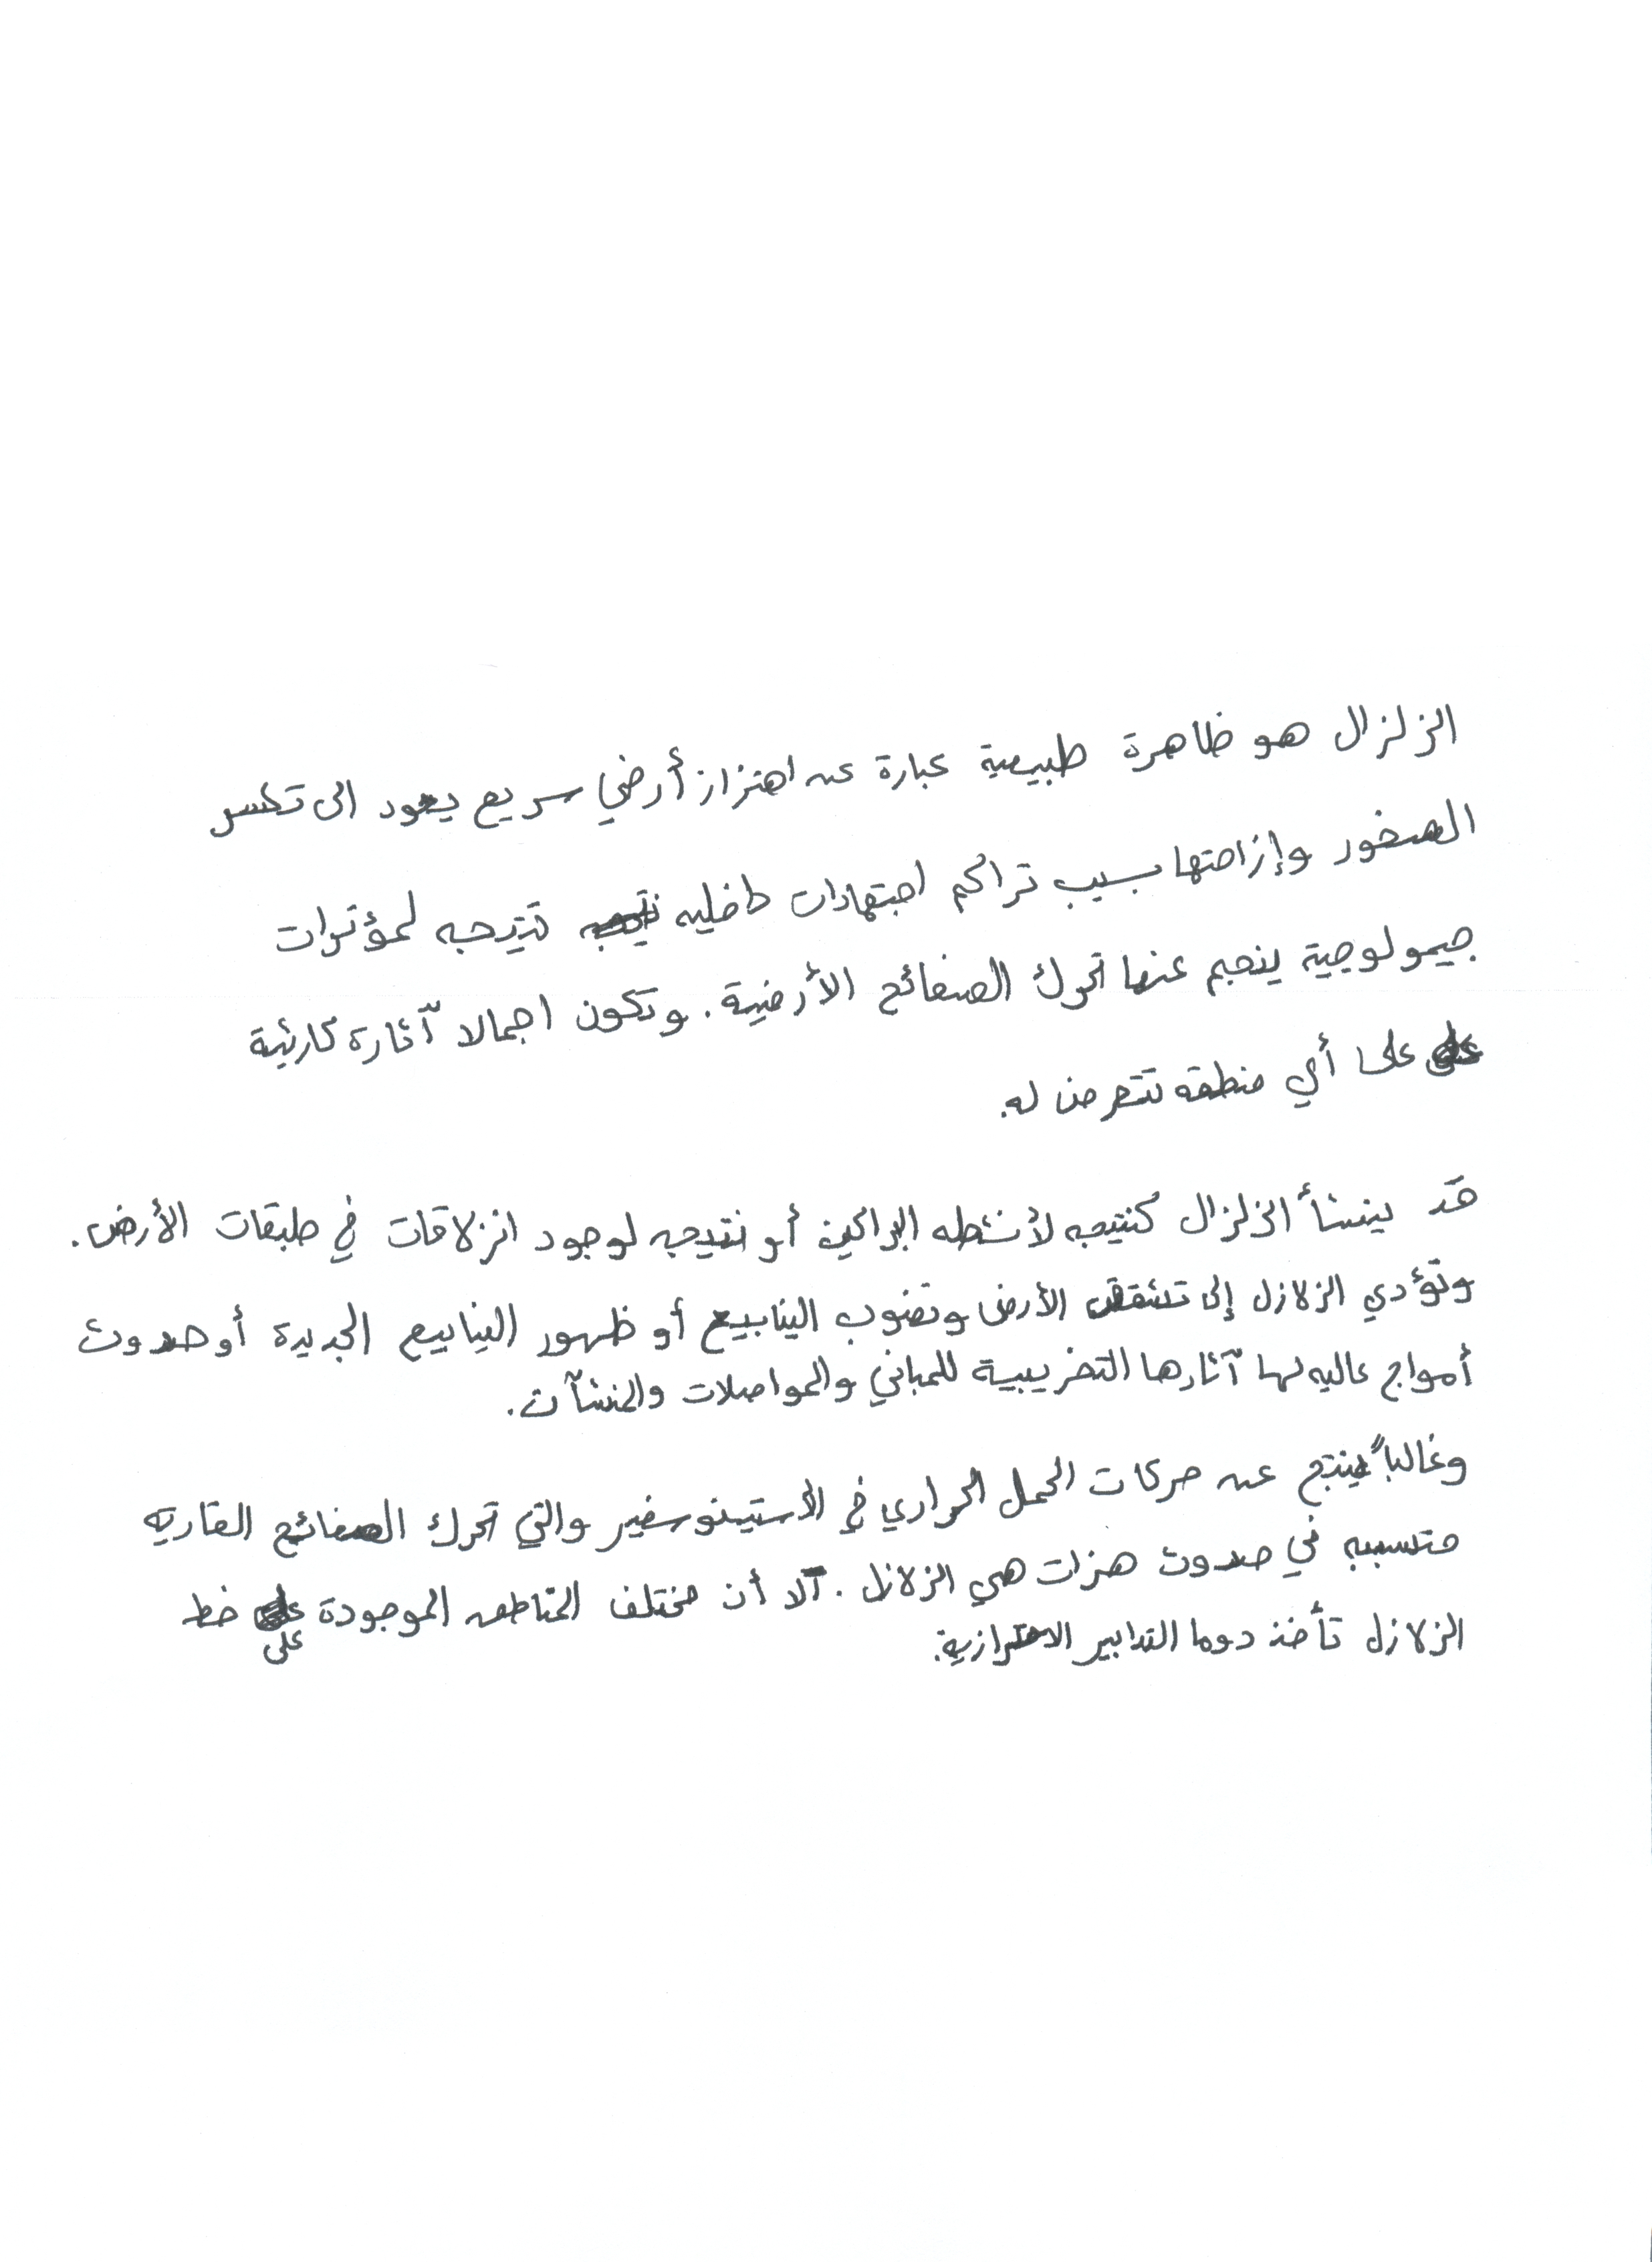 الزلزال هو ظاهرة طبيعية عبارة عن اهتزاز أرضي سريع يعود الى تكسر
الصخور وإزاحتها بسبب تراكم اجتهادات داخليه نتيجه لمؤثرات
جيولوجية ينجم عنها تحرك الصفائح الأرضية. وتكون اجمالا آثاره كارثية
على أي منطقه تتعرض له.
قد ينشأ الزلزال كنتيجه لأنشطه البراكين أو نتيجه لوجود انزلاقات في طبقات الأرض.
وتؤدي الزلازل إلى تشقق الأرض ونضوب الينابيع أو ظهور الينابيع الجديدة أو حدوث
أمواج عاليه لها آثارها التخريبية للمباني والمواصلات والمنشآت.
وغالباً ينتج عن حركات الحمل الحراري في الأستينوسفير والتي تحرك الصفائح القاريه
متسببه في حدوث هزات هي الزلازل. آلا أن مختلف المناطق الموجودة على خط
الزلازل تأخذ دوما التدابير الاحترازية.